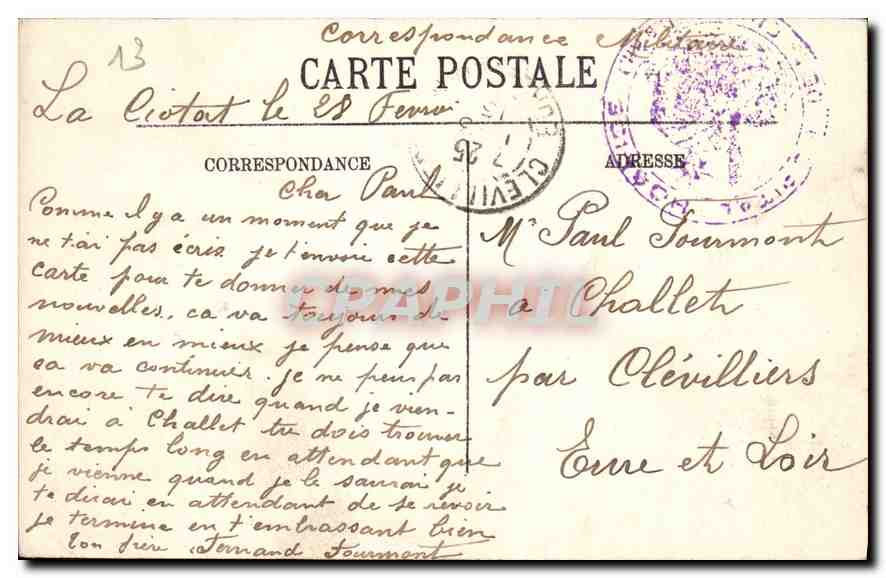 13
Correspondance Militaire
CARTE POSTALE
La Ciotat le 28 Fevri
CLEVILL
7 25
HOPITAL
CORRESPONDANCE
ADRESSE
Cher Paul
Comme il y a un moment que je
ne t'ai pas écris je t'envoie cette
carte pour te donner de mes
nouvelles. ca va toujours de
mieux en mieux je pense que
sa va continuer. je ne peux pas
encore te dire quand je vien-
drai à Challet tu dois trouver
le temps long en attendant que
je vienne quand je le saurai je
te dirai en attendant de se revoir
je termine en t'embrassant bien
ton frère Fernand Fourmont
Mr Paul Fourmont
a Challet
par Clévilliers
Eure et Loir
CARAPHIL